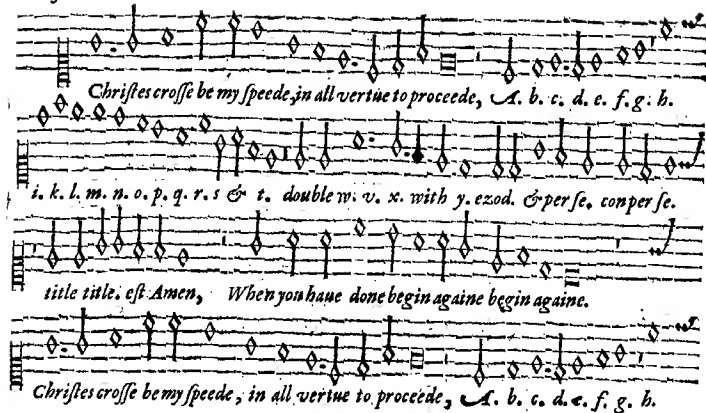 Chriſtes croſſe be my ſpeede, in all vertue to proceede, A. b. c. d. e. f. g. h.
i. k. l. m. n. o. p. q. r. s & t. double w. v. x. with y. ezod. & per ſe. con per ſe.
title title. eſt Amen, When you haue done begin againe begin againe.
Chriſtes croſſe be my ſpeede, in all vertue to proceede, A. b. c. d. e. f. g. h.